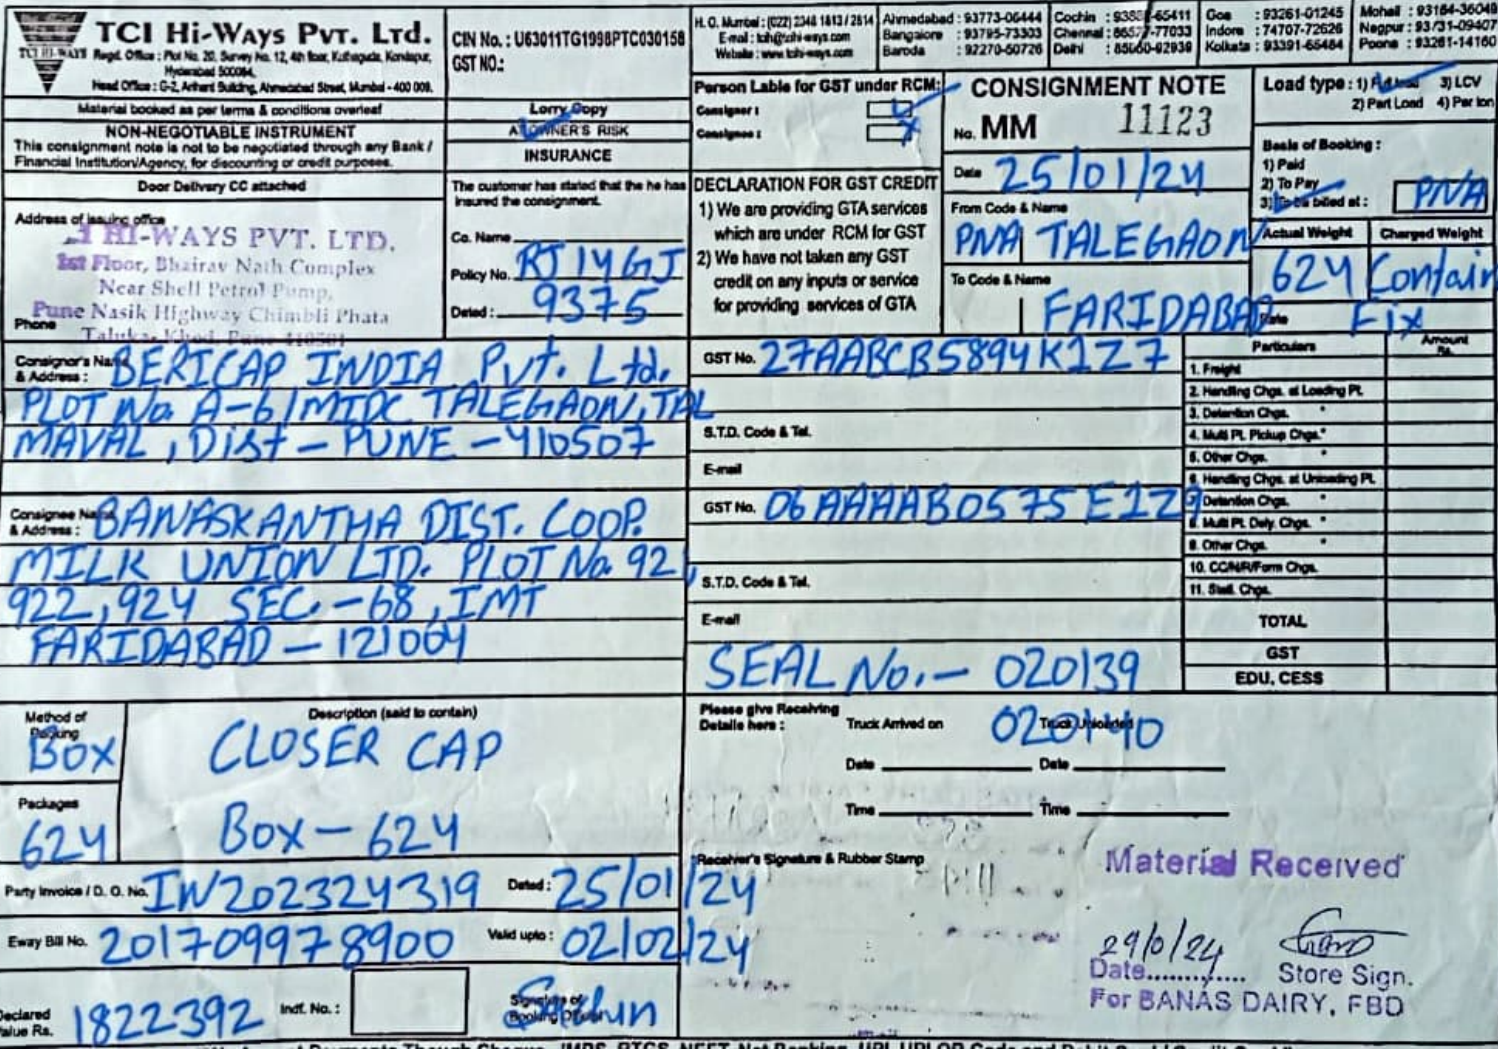 TCI Hi-Ways Pvt. Ltd.
TCI HI-WAYS
Regd. Office : Plot No. 20, Survey No. 12, 4th floor, Kothaguda, Kondapur,
Hyderabad 500084.
Head Office : G-2, Arihant Building, Ahmedabad Street, Mumbai - 400 009.
CIN No. : U63011TG1998PTC030158
GST NO.:
H. O. Mumbai : (022) 2348 1813 / 2814
Website :
Ahmedabad : 93773-06444
Bangalore : 93795-73303
Baroda : 92270-60726
Cochin :
Chennal :
Delhi :
Goa : 93261-01245
Indore : 74707-72626
Kolkata : 93391-65484
Mohali : 93164-36049
Nagpur : 93731-09407
Poona : 93261-14160
Material booked as per terms & conditions overleaf
NON-NEGOTIABLE INSTRUMENT
This consignment note is not to be negotiated through any Bank /
Financial Institution/Agency, for discounting or credit purposes.
Door Delivery CC attached
Lorry Copy
AT OWNER'S RISK
INSURANCE
The customer has stated that the he has
insured the consignment.
Co. Name
Policy No. RJ14GJ
Dated : 9375
Person Lable for GST under RCM:
Consigner :
Consignee :
DECLARATION FOR GST CREDIT
1) We are providing GTA services
which are under RCM for GST
2) We have not taken any GST
credit on any inputs or service
for providing services of GTA
CONSIGNMENT NOTE
No. MM 11123
Date 25/01/24
From Code & Name
PNA TALEGAON
To Code & Name
FARIDABAD
Load type : 1) Full load 3) LCV
2) Part Load 4) Per ton
Basis of Booking :
1) Paid
2) To Pay
3) To be billed at : PNA
Actual Weight Charged Weight
624 Contain
Rate Fix
Address of issuing office
HI-WAYS PVT. LTD.
1st Floor, Bhairav Nath Complex
Near Shell Petrol Pump,
Pune Nasik Highway Chimbli Phata
Phone
Taluka- Khed, Pune 410501
Consignor's Name
& Address : BERICAP INDIA Pvt. Ltd.
PLOT No A-6/MIDC TALEGAON, TAL
MAVAL, Dist - PUNE - 410507
GST No. 27AABCB5894K1Z7
S.T.D. Code & Tel.
E-mail
Consignee Name
& Address : BANASKANTHA DIST. COOP.
MILK UNION LTD. PLOT No 921,
922, 924 SEC.-68, IMT
FARIDABAD - 121004
GST No. 06AAAAB0575E1Z9
S.T.D. Code & Tel.
E-mail
SEAL No.- 020139
020140
Particulars Amount Rs.
1. Freight
2. Handling Chgs. at Loading Pt.
3. Detention Chgs. "
4. Multi Pt. Pickup Chgs. "
5. Other Chgs.
6. Handling Chgs. at Unloading Pt.
7. Detention Chgs. "
8. Multi Pt. Dely. Chgs. "
9. Other Chgs. "
10. CC/N/R/Form Chgs.
11. Stall. Chgs.
TOTAL
GST
EDU. CESS
Method of
Packing
BOX
Description (said to contain)
CLOSER CAP
Packages
624
Box - 624
Party Invoice / D. O. No. IN202324319 Dated : 25/01/24
Eway Bill No. 201709978900 Valid upto : 02/02/24
Declared
Value Rs. 1822392
Indf. No. :
Signature of
Booking Officer
Please give Receiving
Details here :
Truck Arrived on
Truck Unloaded
Date Date
Time Time
Receiver's Signature & Rubber Stamp
Material Received
29/0/24
Date.............. Store Sign.
For BANAS DAIRY, FBD